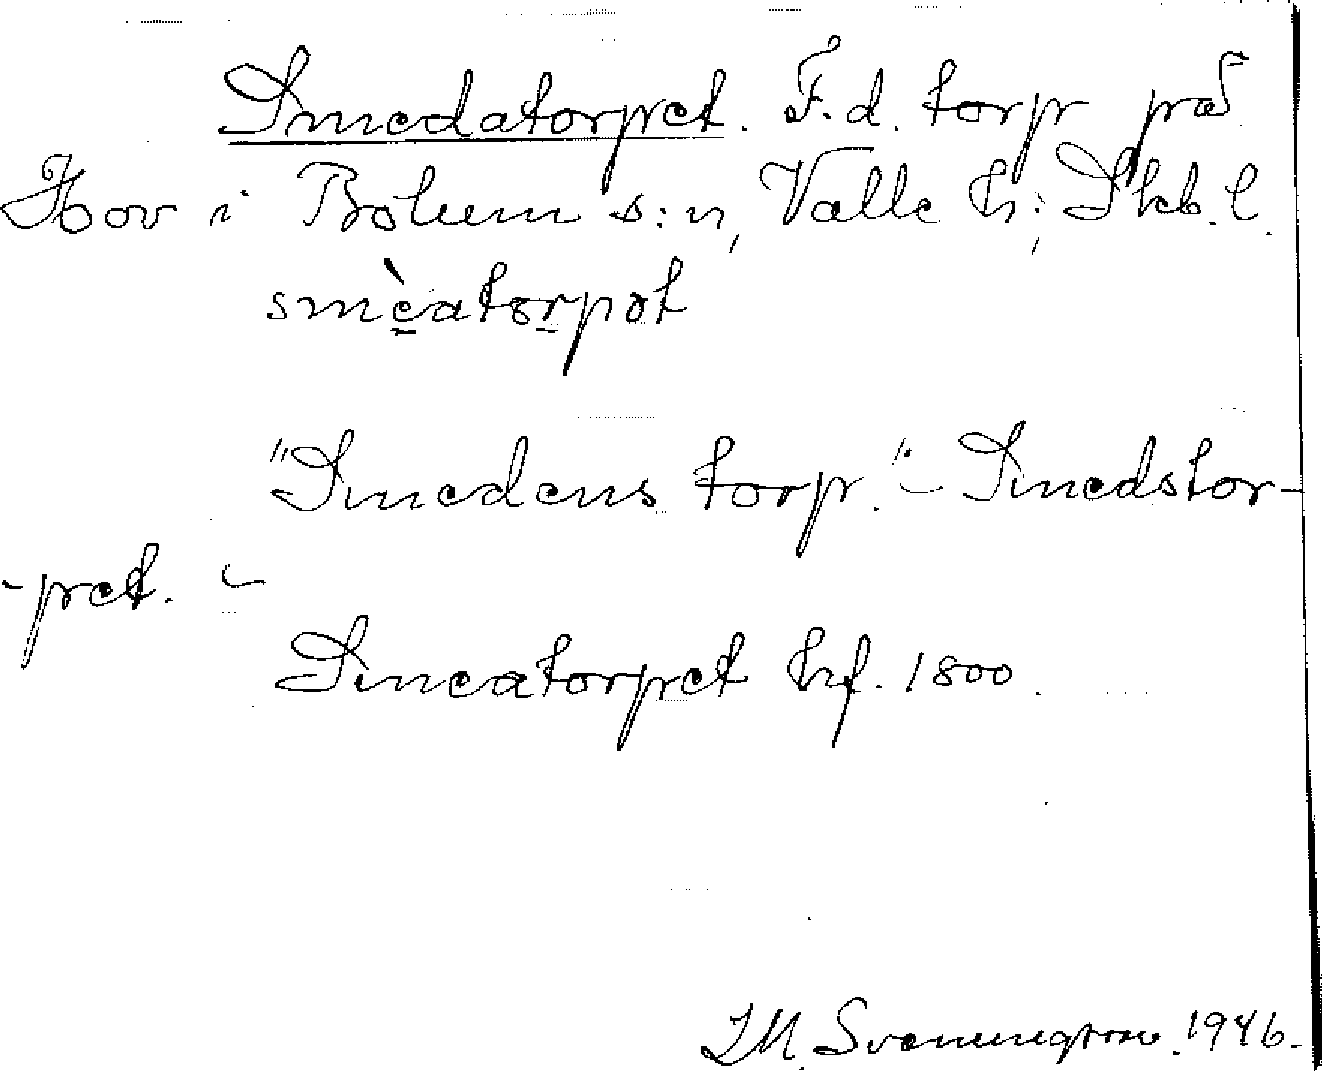 Smedatorpet. F.d. torp på
Hov i Bolum s:n, Valle h:, Skb. l.
smèatorpət
"Smedens torp." - Smedstor-
-pet. -
Smeatorpet hf. 1800.
I M. Svenungsson. 1946.